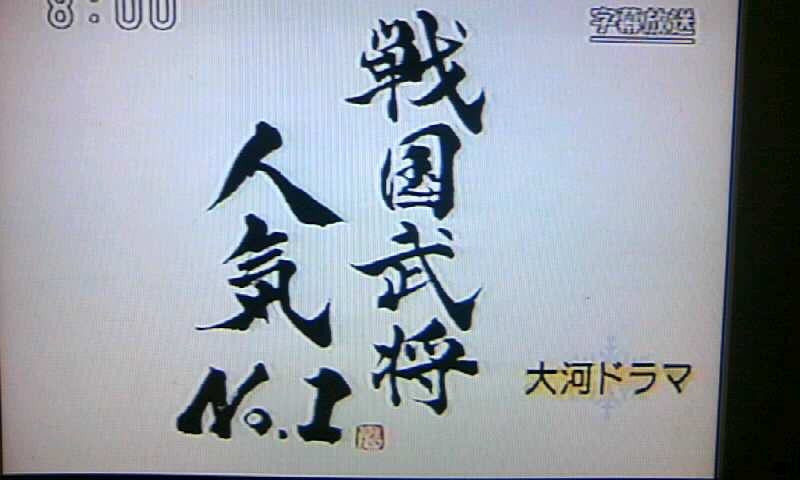 8:00
字幕放送
戦国武将
人気
No.1
大河ドラマ